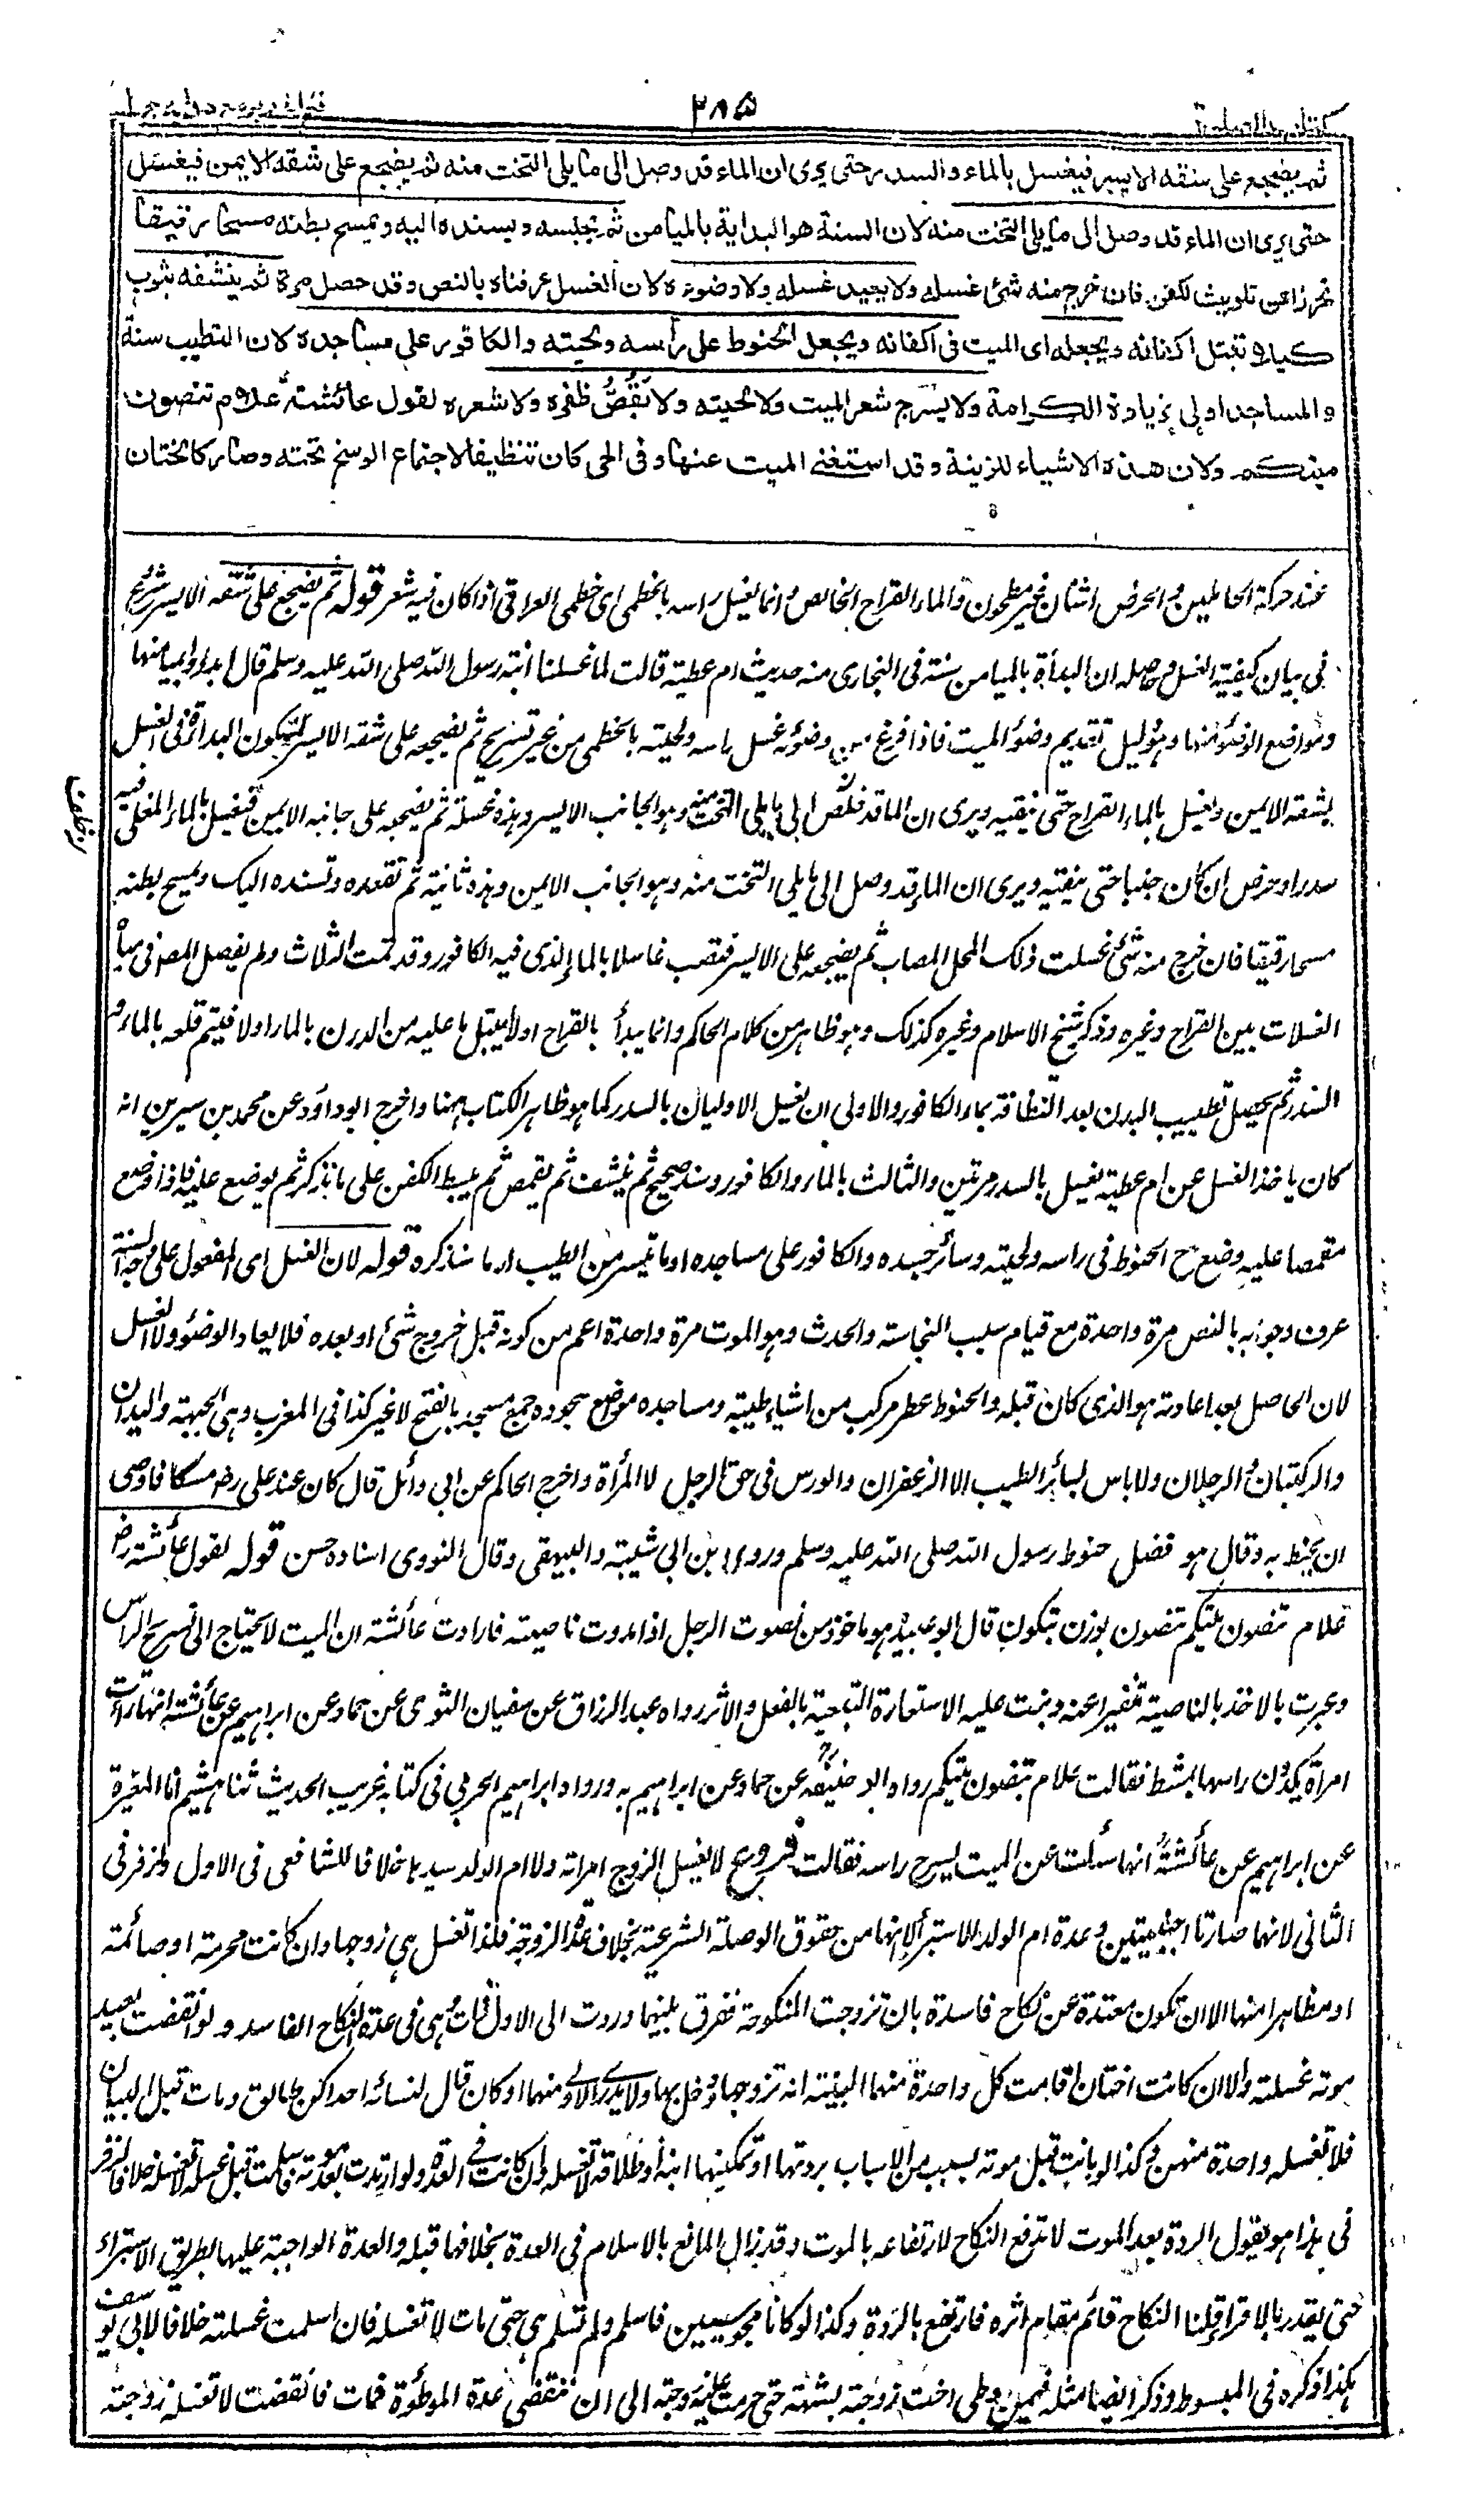 ٢٨٥
ثم يضجع على شقه الايسر فيغسل بالماء والسدر حتى يرى ان الماء قد وصل الى ما يلى التخت منه ثم يضجع على شقه الايمن فيغسل
حتى يرى ان الماء قد وصل الى ما يلى التخت منه لان السنة هو البداية بالميامن ثم يجلسه ويسنده اليه ويمسح بطنه مسحا رقيقا
تحرزا عن تلويث الكفن فان خرج منه شئ غسله ولا يعيد غسله ولا وضوءه لان الغسل عرفناه بالنص وقد حصل مرة ثم ينشفه بثوب
كيلا تبتل اكفانه ويجعله اى الميت فى اكفانه ويجعل الحنوط على رأسه ولحيته والكافور على مساجده لان التطيب سنة
والمساجد اولى بزيادة الكرامة ولا يسرح شعر الميت ولا لحيته ولا يقص ظفره ولا شعره لقول عائشة علام تنصون
ميتكم ولان هذه الاشياء للزينة وقد استغنى الميت عنها وفى الحى كان تنظيفا لاجتماع الوسخ تحته وصار كالختان
عند حركة الحاملين والحرض اشنان غير مطحون والماء القراح الخالص وانما يغسل راسه بالخطمى اى خطمى العراقى اذا كان فيه شعر قوله ثم يضجع على شقه الايسر شروع
فى بيان كيفية الغسل وحاصله ان البدأة بالميامن سنة فى البخارى منه حديث ام عطية قالت لما غسلنا ابنة رسول الله صلى الله عليه وسلم قال ابدأوا بميامنها
ومواضع الوضوء منها وهو دليل تقديم وضوء الميت فاذا فرغ من وضوئه غسل راسه ولحيته بالخطمى من غير تسريح ثم يضجعه على شقه الايسر لتكون البداءة فى الغسل
بشقه الايمن ويغسل بالماء القراح حتى ينقيه ويرى ان الماء قد خلص الى ما يلى التخت منه وهو الجانب الايسر وهذه غسلة ثم يضجعه على جانبه الايمن فيغسل بالماء المغلى فيه
سدر او حرض ان كان جنبا حتى ينقيه ويرى ان الماء قد وصل الى ما يلى التخت منه وهو الجانب الايمن وهذه ثانية ثم تقعده وتسنده اليك ويمسح بطنه
مسحا رقيقا فان خرج منه شئ غسلت ذلك المحل المصاب ثم يضجعه على الايسر فتصب غاسلا بالماء الذى فيه الكافور وقد تمت الثلاث ولم يفصل المص فى مياه
الغسلات بين القراح وغيره وذكر شيخ الاسلام وغيره كذلك وهو ظاهر من كلام الحاكم وانما يبدأ بالقراح اولا ليبتل ما عليه من الدرن بالماء اولا فيتم قلعه بالماء و
السدر ثم يحصل تطييب البدن بعد النظافة بماء الكافور والاولى ان يغسل الاوليان بالسدر كما هو ظاهر الكتاب ههنا واخرج ابو داؤد عن محمد بن سيرين انه
كان ياخذ الغسل عن ام عطية يغسل بالسدر مرتين والثالث بالماء والكافور وسند صحيح ثم ينشف ثم يقمص ثم يبسط الكفن على ما نذكر ثم يوضع عليه فاذا وضع
مقمصا عليه وضع ح الحنوط فى راسه ولحيته وسائر جسده والكافور على مساجده او ما تيسر من الطيب او ما سنذكره قوله لان الغسل اى المفعول على وجه السنة
عرف وجوبه بالنص مرة واحدة مع قيام سبب النجاسة والحدث وهو الموت مرة واحدة اعم من كونه قبل خروج شئ او بعده فلا يعاد الوضوء ولا الغسل
لان الحاصل بعد اعادته هو الذى كان قبله والحنوط عطر مركب من اشياء طيبة ومساجده مواضع سجوده جمع مسجد بالفتح لا غير كذا فى المغرب وهى الجبهة واليدان
والركبتان والرجلان ولا باس بسائر الطيب الا الزعفران والورس فى حق الرجل لا المرأة واخرج الحاكم عن ابى وائل قال كان عند على رض مسك فاوصى
ان يحنط به وقال هو فضل حنوط رسول الله صلى الله عليه وسلم ورواه ابن ابى شيبة والبيهقى وقال النووى اسناده حسن قوله لقول عائشة رض
علام تنصون ميتكم تنصون بوزن تبكون قال ابو عبيد هو ماخوذ من نصوت الرجل اذا مددت ناصيته فارادت عائشة ان الميت لا يحتاج الى تسريح الراس
وعبرت بالاخذ بالناصية تنفيرا عنه وبنت عليه الاستعارة التبعية بالفعل والاثر رواه عبد الرزاق عن سفيان الثورى عن حماد عن ابراهيم عن عائشة انها رأت
امرأة يكدون راسها بمشط فقالت علام تنصون ميتكم رواه ابو حنيفة عن حماد عن ابراهيم به ورواه ابراهيم الحربى فى كتابه غريب الحديث ثنا هشيم انا المغيرة
عن ابراهيم عن عائشة انها سألت عن الميت يسرح راسه فقالت فروع لا يغسل الزوج امرأته ولا ام الولد سيدها خلافا للشافعى فى الاول ولزفر فى
الثانى لانهما صارتا اجنبيتين وعدة ام الولد للاستبراء لا انها من حقوق الوصلة الشرعية بخلاف عدة الزوجة فلذا تغسل هى زوجها وان كانت محرمة او صائمة
او مظاهرا منها الا ان تكون معتدة عن نكاح فاسدة بان تزوجت المنكوحة ففرق بينهما وردت الى الاول فمات وهى فى عدة النكاح الفاسد ولو انقضت بعيد
موته غسلته والا ان كانت اختان اقامت كل واحدة منهما البينة انه تزوجها ودخل بها ولا يدرى الاولى منهما او كان قال لنسائه احداكن طالق ومات قبل البيان
فلا تغسله واحدة منهن وكذا لو بانت قبل موته بسبب من الاسباب بردتها او تمكينها ابنه او طلاقه لا تغسله وان كانت فى العدة ولو ارتدت بعد موته فاسلمت قبل غسله لا تغسله خلافا لزفر
فى هذا هو يقول الردة بعد الموت لا ترفع النكاح لارتفاعه بالموت وقد زال المانع بالاسلام فى العدة بخلافها قبله والعدة الواجبة عليها بطريق الاستبراء
حتى يقدر بالاقراء قلنا النكاح قائم مقام اثره فارتفع بالردة وكذا لو كانا مجوسيين فاسلم ولم تسلم هى حتى مات لا تغسله فان اسلمت غسلته خلافا لابى يوسف
هكذا ذكره فى المبسوط وذكر ايضا مثله فيمن وطى اخت زوجته بشبهة حتى حرمت عليه زوجته الى ان تنقضى عدة الموطؤة فمات فانقضت لا تغسله زوجته